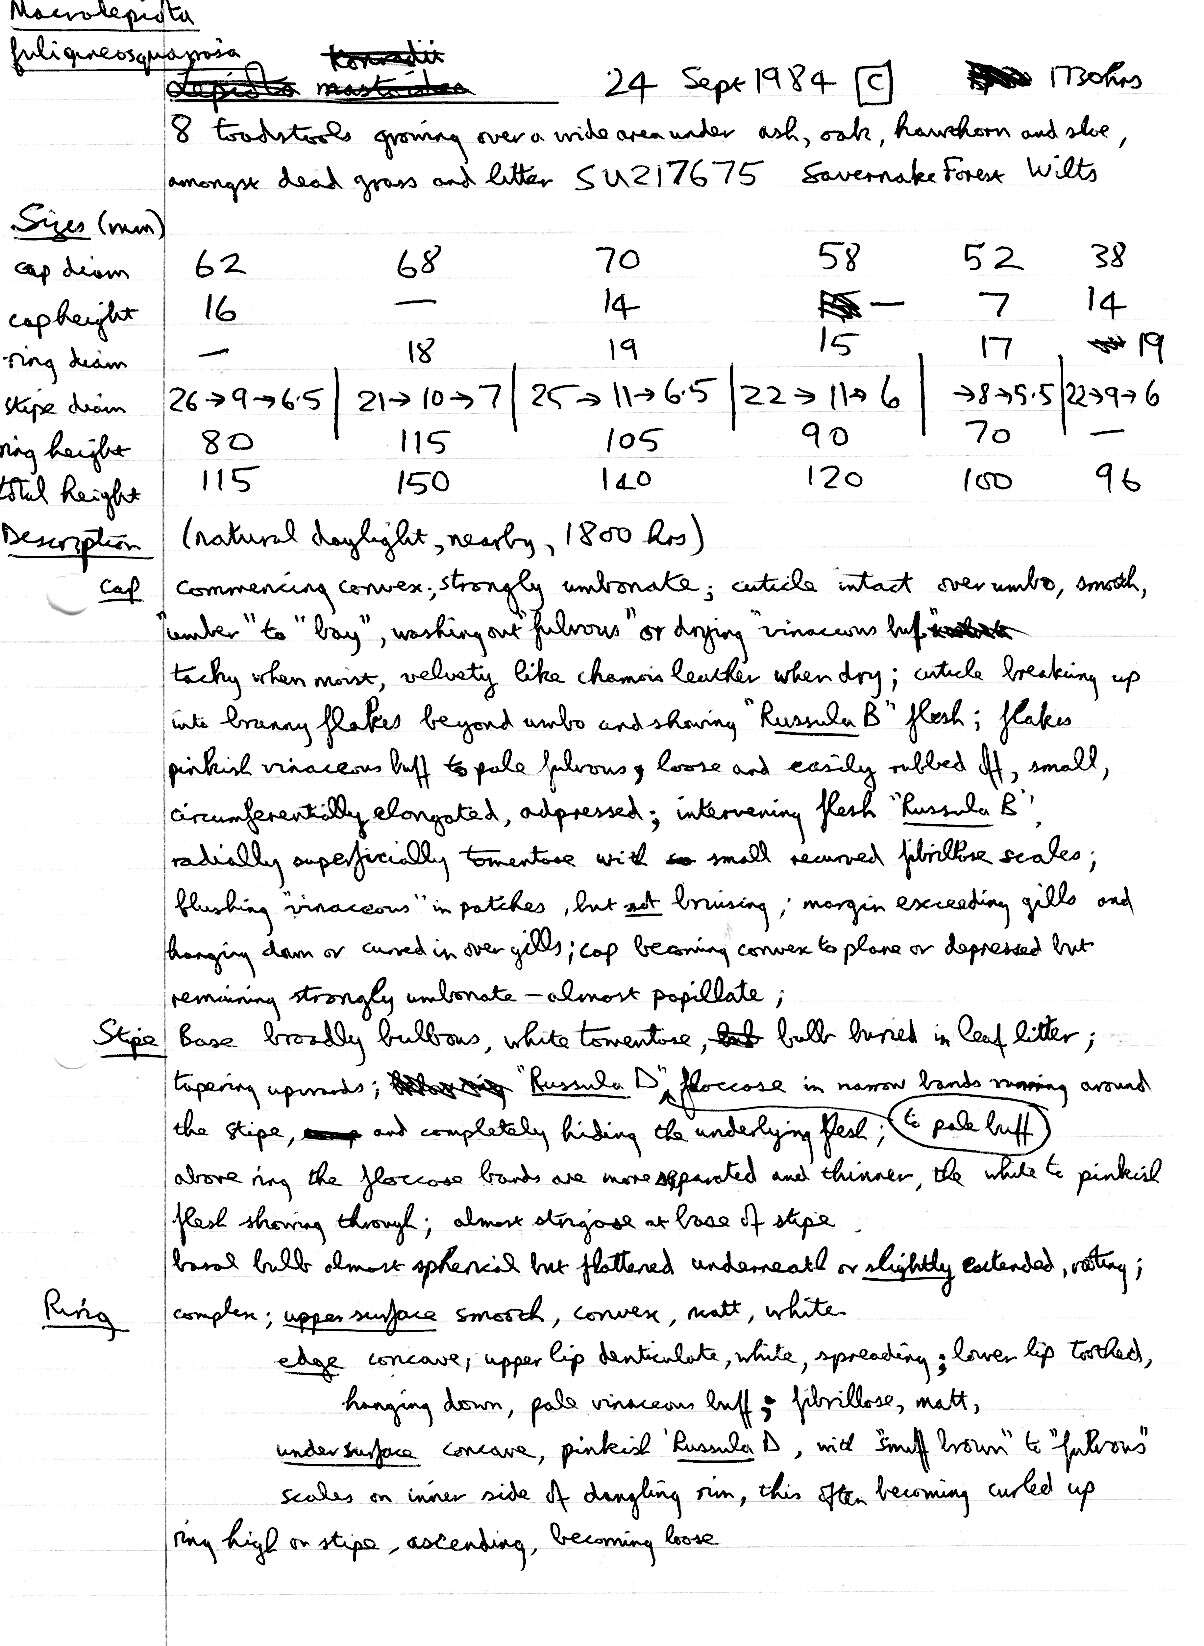 Macrolepiota
fuligineosquamosa Konradii
Lepiota mastoidea 24 Sept 1984 C 1730hrs
8 toadstools growing over a wide area under ash, oak, hawthorn and sloe,
amongst dead grass and litter SU217675 Savernake Forest Wilts
Sizes (mm)
cap diam 62 68 70 58 52 38
cap height 16 — 14 — 7 14
ring diam — 18 19 15 17 19
stipe diam 26→9→6.5 | 21→10→7 | 25→11→6.5 | 22→11→6 | →8→5.5 | 22→9→6
ring height 80 115 105 90 70 —
total height 115 150 140 120 100 96
Description (natural daylight, nearby, 1800 hrs)
cap commencing convex; strongly umbonate; cuticle intact over umbo, smooth,
"umber" to "bay", washing out "fulvous" or drying "vinaceous buf"
tacky when moist, velvety like chamois leather when dry; cuticle breaking up
into branny flakes beyond umbo and showing "Russula B" flesh; flakes
pinkish vinaceous buff to pale fulvous, loose and easily rubbed off, small,
circumferentially elongated, adpressed; intervening flesh "Russula B",
radially superficially tomentose with small recurved fibrillose scales;
flushing "vinaceous" in patches, but not bruising; margin exceeding gills and
hanging down or curved in over gills; cap becoming convex to plane or depressed but
remaining strongly umbonate – almost papillate;
Stipe Base broadly bulbous, white tomentose, but bulb buried in leaf litter;
tapering upwards; "Russula D", floccose in narrow bands running around
the stipe, and completely hiding the underlying flesh; to pale buff
above ring the floccose bands are more separated and thinner, the white to pinkish
flesh showing through; almost strigose at base of stipe
basal bulb almost spherical but flattened underneath or slightly extended, rooting;
Ring complex; upper surface smooth, convex, matt, white
edge concave; upper lip denticulate, white, spreading; lower lip toothed,
hanging down, pale vinaceous buff; fibrillose, matt,
undersurface concave, pinkish "Russula D, with "snuff brown" to "fulvous"
scales on inner side of dangling rim, this often becoming curled up
ring high on stipe, ascending, becoming loose